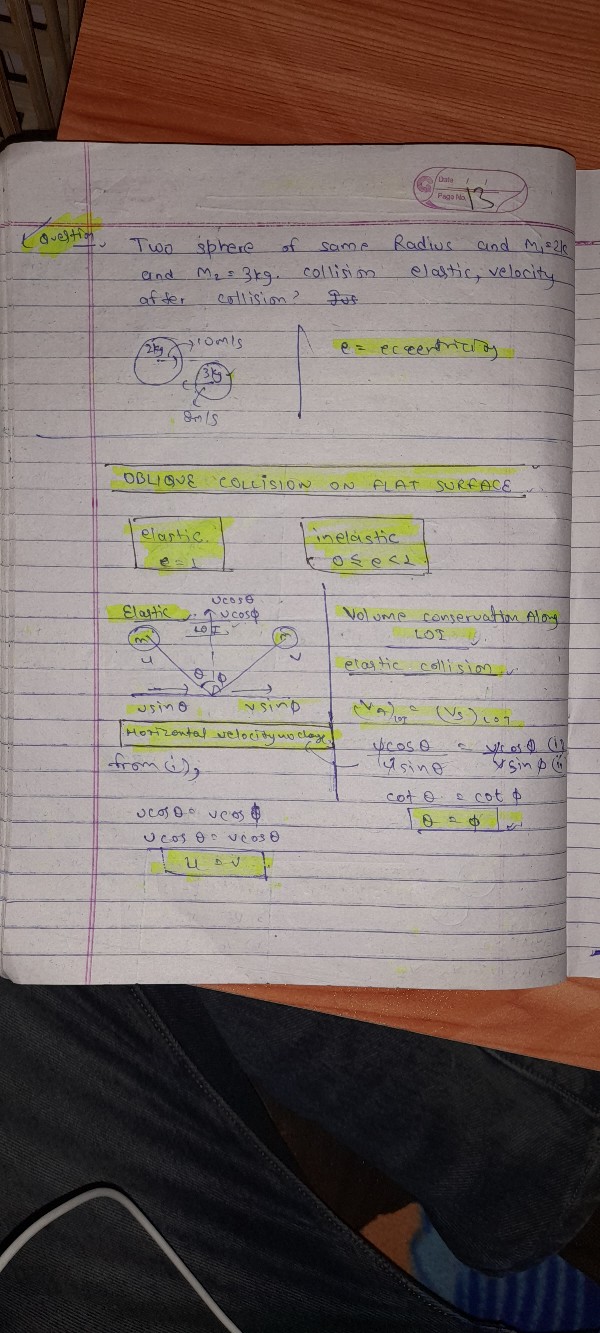 Date
Page No. 13
Question. Two sphere of same Radius and M₁=2k
and M₂ = 3kg. collision elastic, velocity
after collision?
2kg → 10m/s
3kg
8m/s
e = ecceentricity
OBLIQUE COLLISION ON FLAT SURFACE
elastic.
e = 1
inelastic
0 ≤ e < 1
Elastic
vcosθ
ucosϕ
LOI
m
m
u
v
θ ϕ
usinθ
vsinϕ
Horizontal velocity no
from (i),
ucosθ = vcosϕ
ucosθ = vcosθ
u = v
Volume conservation Along
LOI
elastic collision
LOI = LOI
ucosθ = vcosϕ (i)
usinθ vsinϕ (ii)
cotθ = cotϕ
θ = ϕ